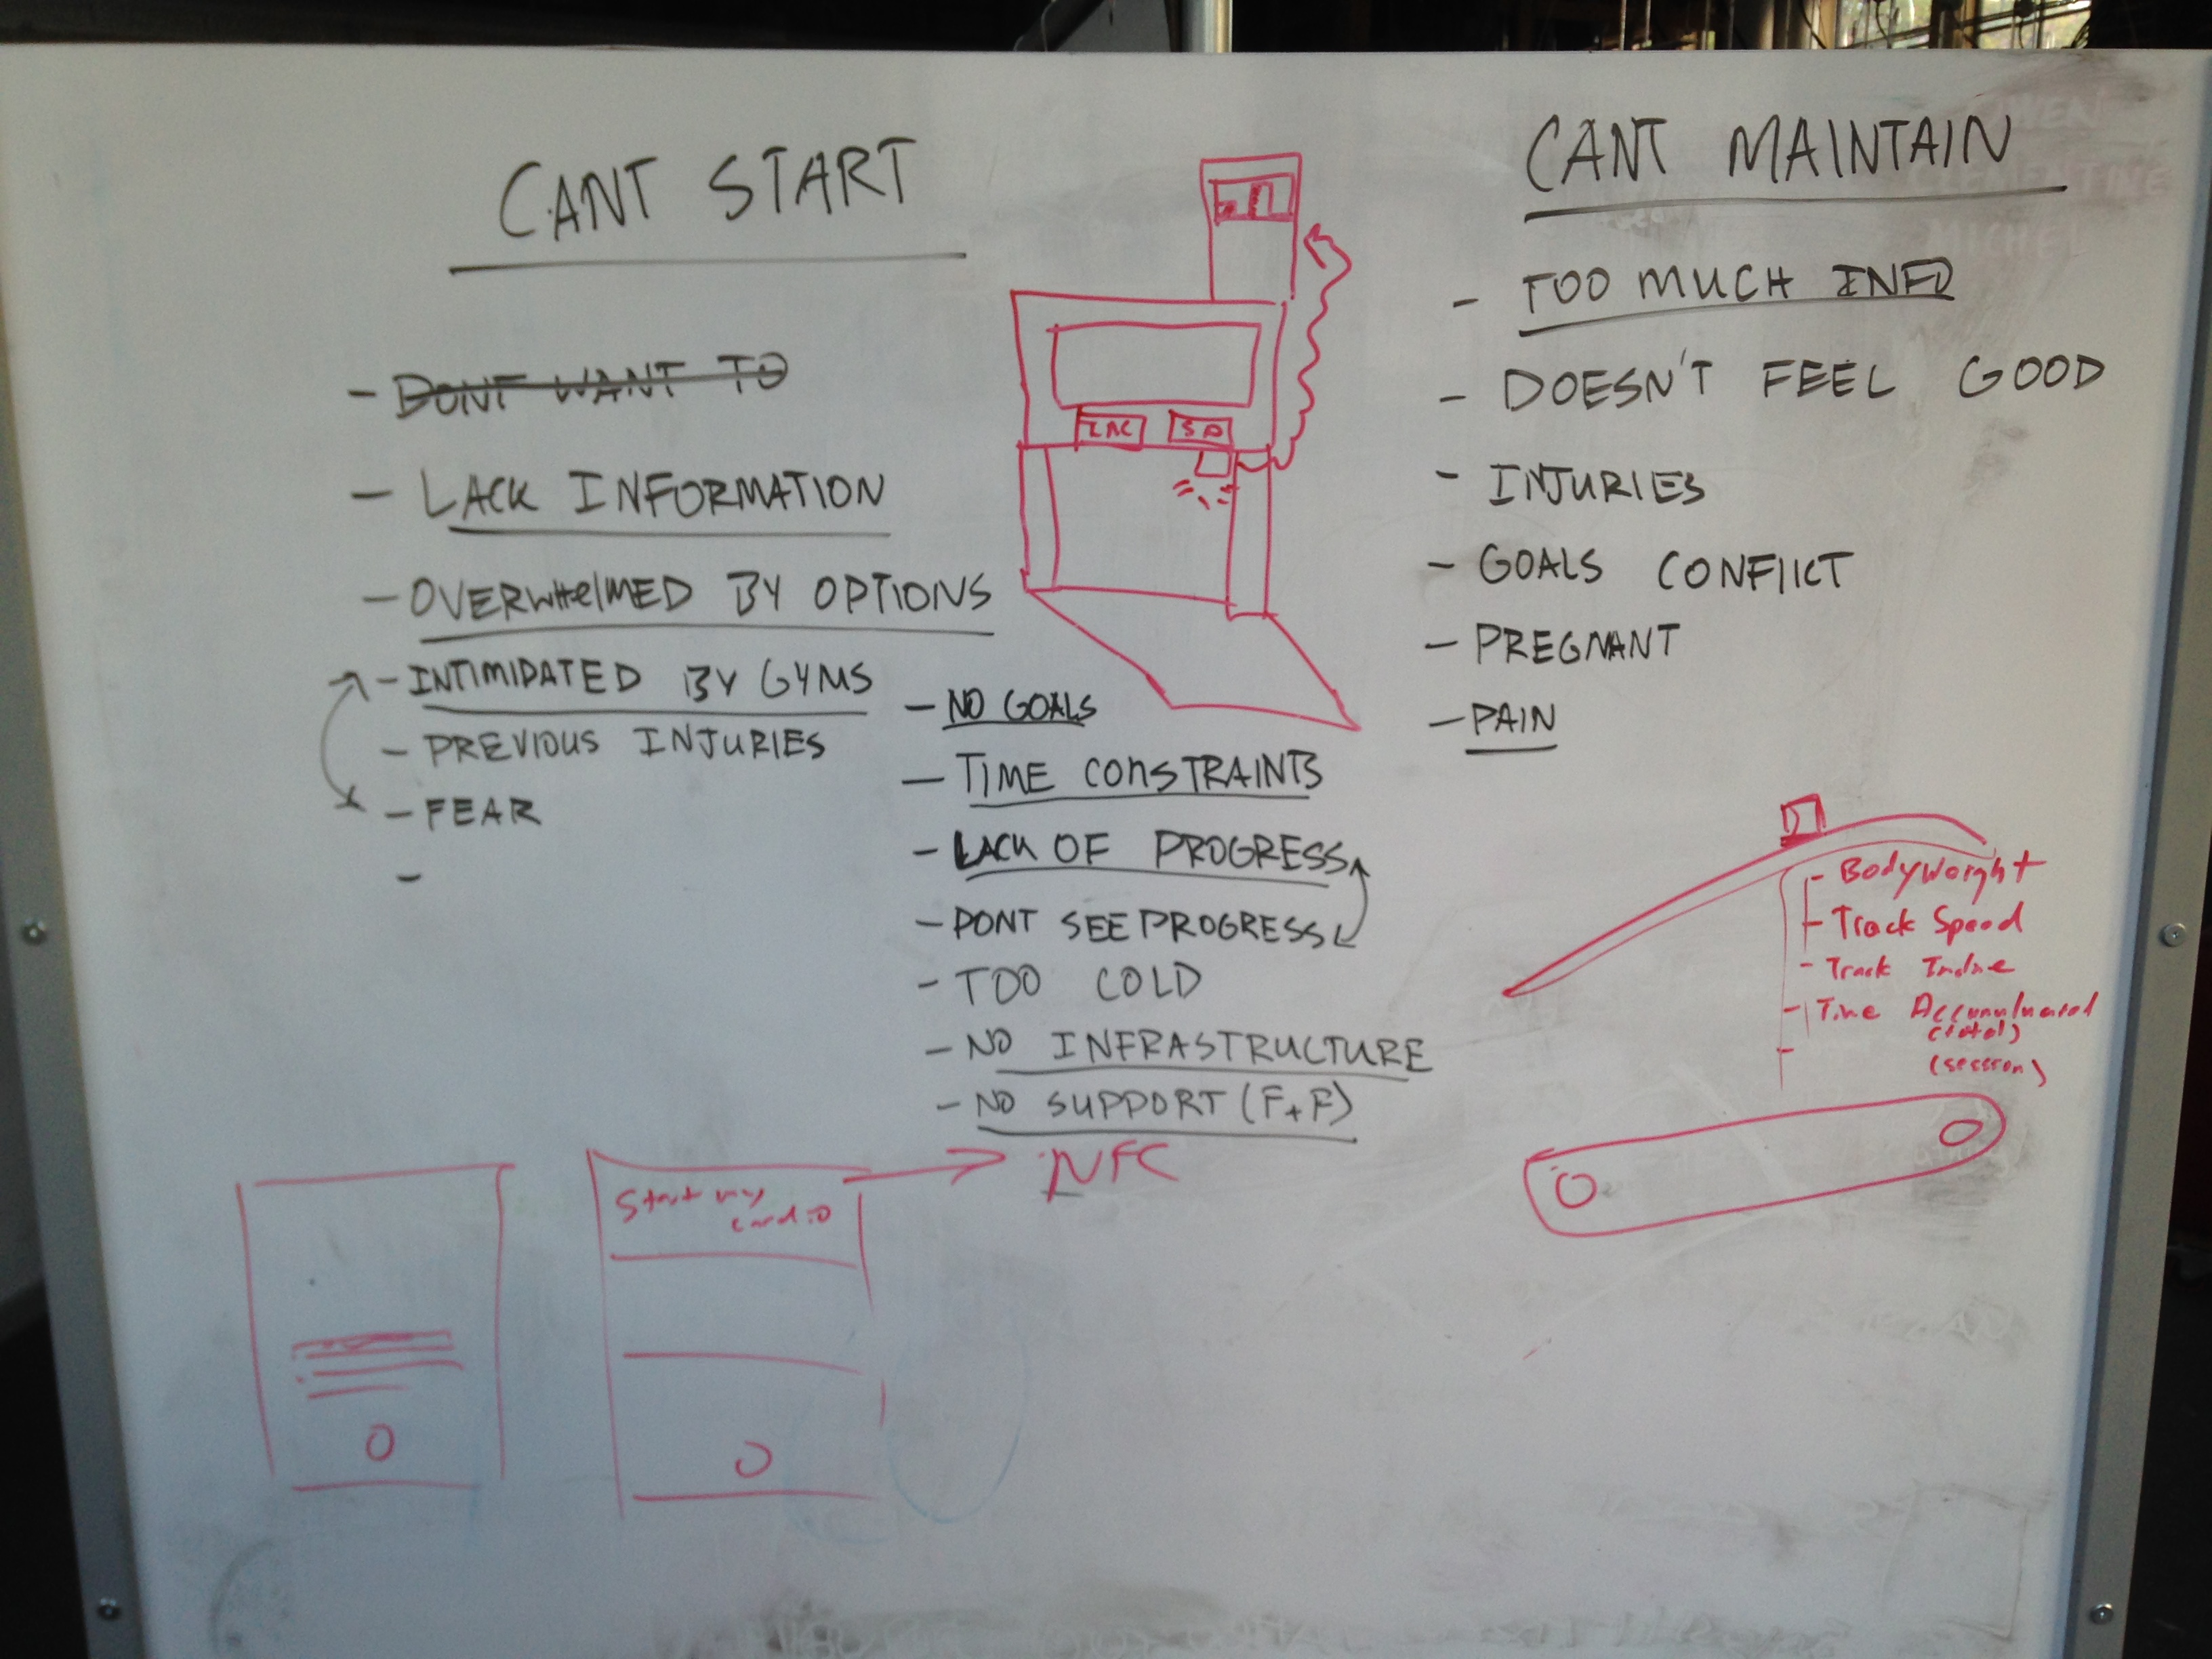 CANT START
- DONT WANT TO
- LACK INFORMATION
- OVERWHElMED BY OPTIONS
- INTIMIDATED BY GYMS
- PREVIOUS INJURIES
- FEAR
-
INC SP
- NO GOALS
- TIME CONSTRAINTS
- LACK OF PROGRESS
- DONT SEE PROGRESS
- TOO COLD
- NO INFRASTRUCTURE
- NO SUPPORT (F+F)
CANT MAINTAIN
- TOO MUCH INFO
- DOESN'T FEEL GOOD
- INJURIES
- GOALS CONFlICT
- PREGNANT
- PAIN
- Bodyweight
- Track Speed
- Track Incline
- Time Accumulated
(total)
(session)
-
Start my
cardio
NFC
OWEN
CLEMENTINE
MICHEL